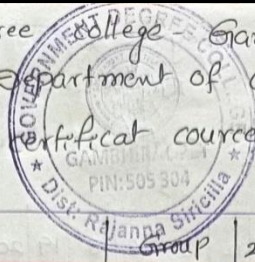 ree College - Gam
Department of C
Certifical cource
GOVERNMENT DEGREE COLL
PIN:505 304
★ Dist: Rajanna Siricilla ★
Group